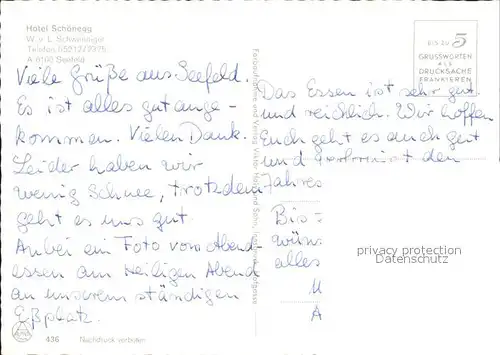 Hotel Schönegg
W. u. L. Schwenniger
Telefon 05212/2375
A 6100 Seefeld
Viele Grüße aus Seefeld.
Es ist alles gut ange-
kommen. Vielen Dank.
Leider haben wir
wenig Schnee, trotzdem
geht es uns gut.
Anbei ein Foto vom Abend-
essen am Heiligen Abend
an unserem ständigen
Eßplatz.
436 Nachdruck verboten
BIS ZU 5
GRUSSWORTEN
ALS
DRUCKSACHE
FRANKIEREN
Das Essen ist sehr gut
und reichlich. Wir hoffen
Euch geht es auch gut
und den
Jahres
Bis
wün
alles
U
A
privacy protection
Datenschutz